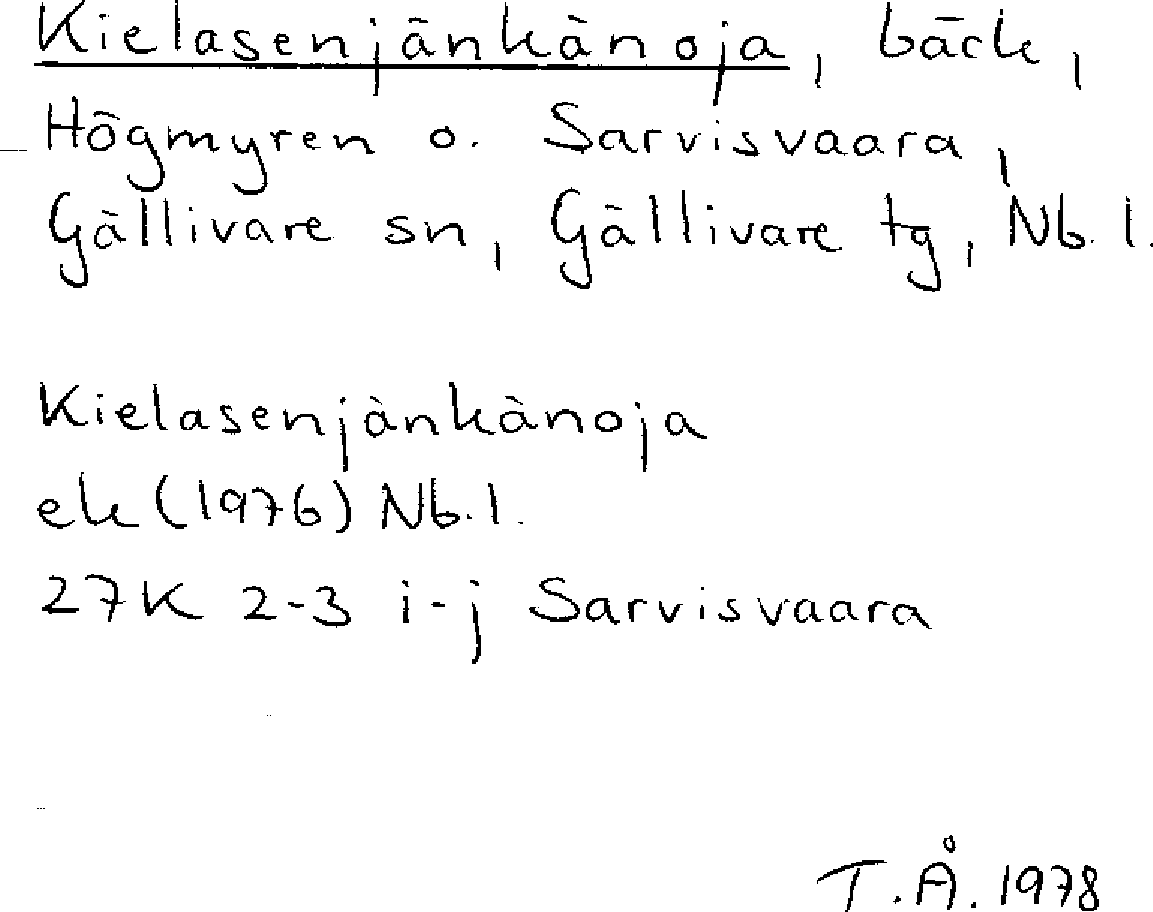 Kielasenjänkänoja, bäck,
Högmyren o. Sarvisvaara,
Gällivare sn, Gällivare tg, Nb. l.
Kielasenjänkänoja
ek (1976) Nb. l.
27K 2-3 i-j Sarvisvaara
T.Å. 1978